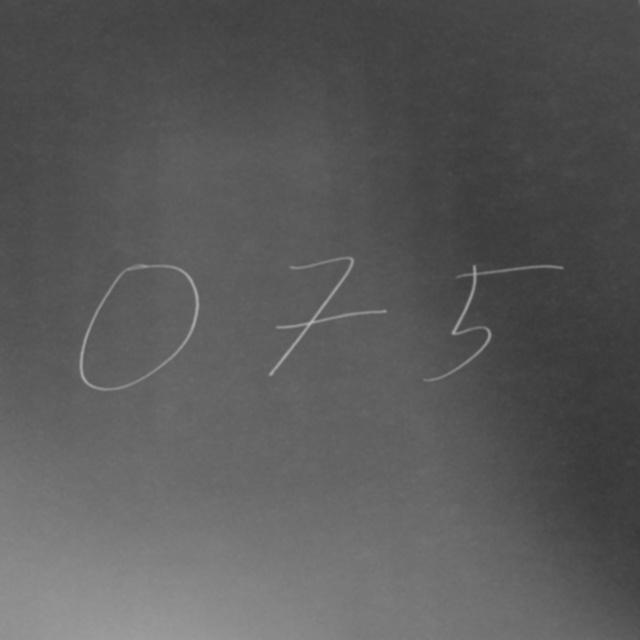 0 7 5